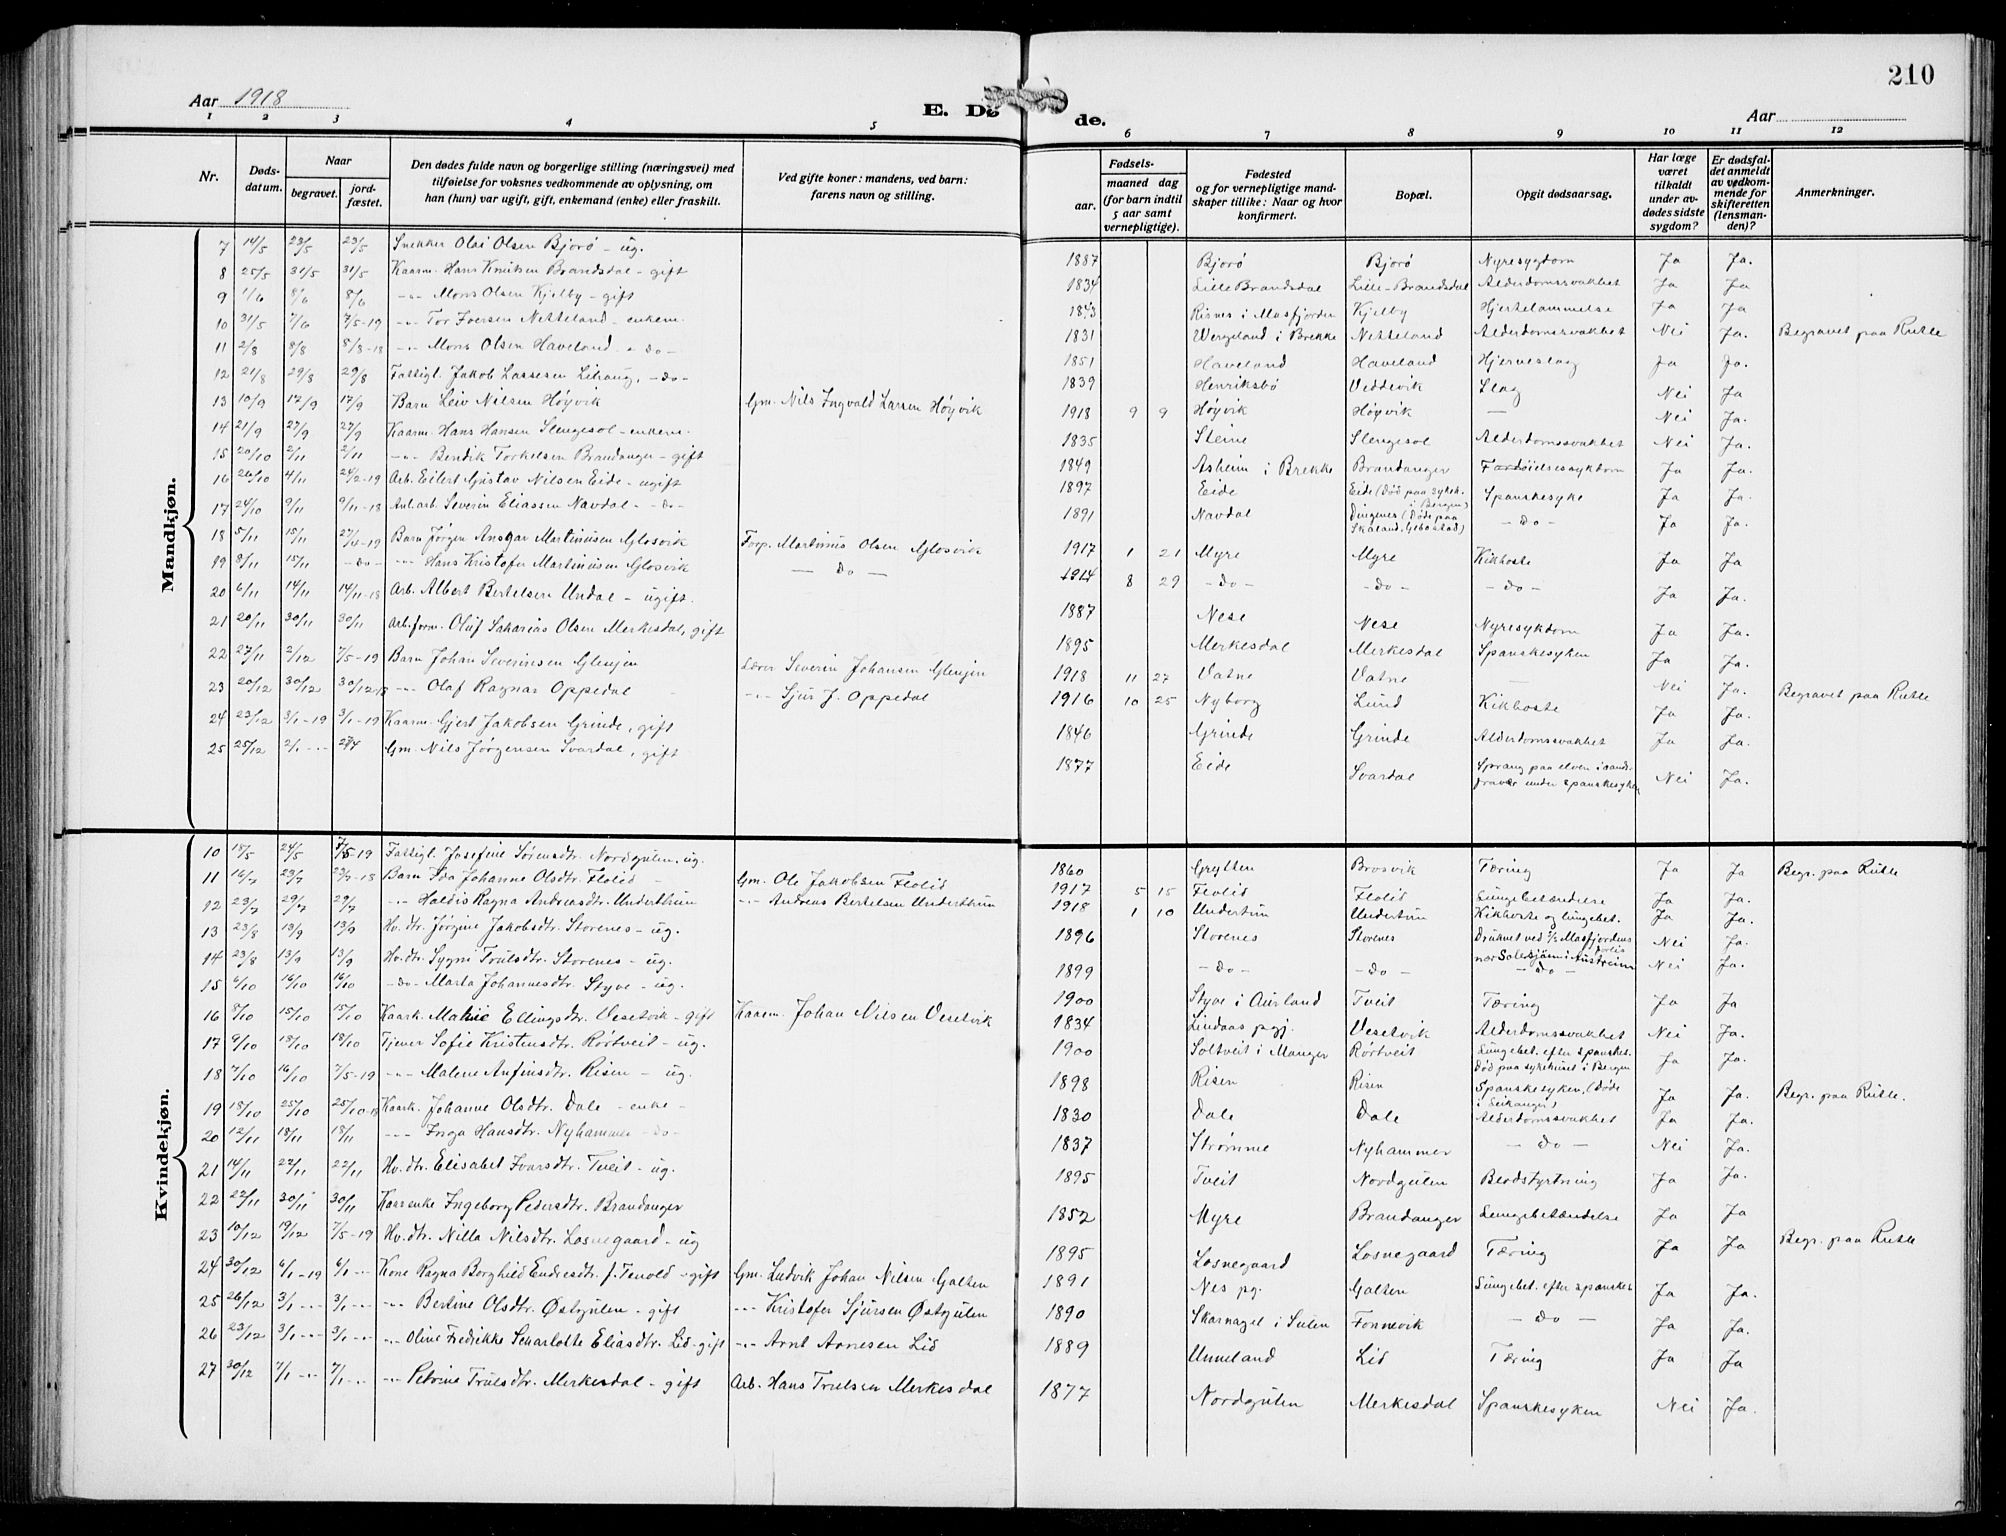 210
Aar 1918
E. Dø
de.
Aar
1 2 3 4 5 6 7 8 9 10 11 12
Nr.
Døds-
datum.
Naar
begravet.
jord-
fæstet.
Den dødes fulde navn og borgerlige stilling (næringsvei) med
tilføielse for voksnes vedkommende av oplysning, om
han (hun) var ugift, gift, enkemand (enke) eller fraskilt.
Ved gifte koner: mandens, ved barn:
farens navn og stilling.
Fødsels-
aar.
maaned dag
(for barn indtil
5 aar samt
vernepligtige).
Fødested
og for vernepligtige mand-
skaper tillike: Naar og hvor
konfirmert.
Bopæl.
Opgit dødsaarsag.
Har læge
været
tilkaldt
under av-
dødes sidste
sygdom?
Er dødsfal-
det anmeldt
av vedkom-
mende for
skifteretten
(lensman-
den)?
Anmerkninger.
Mandkjøn.
7 14/5 23/5 23/5 Snekker Olai Olsen Bjorø - ug. 1887 Bjorø Bjorø Nyresygdom Ja Ja.
8 25/5 31/5 31/5 Kaarm. Hans Knutsen Brandsdal - gift 1834 Lille Brandsdal Lille-Brandsdal Alderdomssvakhet Ja Ja
9 1/6 8/6 8/6 -"- Mons Olsen Kjelby - gift 1843 Risnes i Masfjorden Kjelby Hjertelammelse Ja Ja
10 31/5 7/6 7/5-19 -"- Tor Iversen Netteland - enkem. 1831 Wergeland i Brekke Netteland Alderdomssvakhet Nei Ja. Begravet paa Rutle
11 2/8 8/8 8/8-18 -"- Mons Olsen Haveland - do - 1851 Haveland Haveland Hjerneslag Ja Ja.
12 21/8 29/8 29/8 Fattigl. Jakob Lassesen Lihaug, - do - 1839 Henriksbø Veddevik Slag Nei Ja
13 10/9 17/9 17/9 Barn Leiv Nilsen Høyvik Gm. Nils Ingvald Larsen Høyvik 1918 9 9 Høyvik Høyvik — Nei Ja.
14 21/9 27/9 27/9 Kaarm. Hans Hansen Slengesol - enkem. 1835 Steine Slengesol Alderdomssvakhet Nei Ja.
15 20/10 2/11 2/11 -"- Bendik Torkelsen Brandanger - gift 1849 Asheim i Brekke Brandanger Fordøielsessykdom Ja Ja.
16 26/10 4/11 24/2-19 Arb. Eilert Gustav Nilsen Eide - ugift 1897 Eide Eide (Død paa sykeh. i Bergen) Spanskesyke Ja Ja.
17 24/10 9/11 9/11-18 Anl.arb. Severin Eliassen Navdal - do - 1891 Navdal Dingenes (Døde paa Skaland, Gibostad) - do - Ja Ja.
18 5/11 15/11 27/4-19 Barn Jørgen Ansgar Martinusen Glosvik Forp. Martinus Olsen Glosvik 1917 1 21 Myre Myre Kikhoste Ja Ja
19 8/11 15/11 -do- -"- Hans Kristofer Martinusen Glosvik - Do - 1914 8 29 - do - - do - - do - Ja Ja.
20 6/11 14/11 14/11-18 Arb. Albert Bertelsen Undal - ugift. 1887 Nese Nese Nyresykdom Ja Ja.
21 20/11 30/11 30/11 Arb.form. Oluf Sakarias Olsen Merkesdal, gift 1895 Merkesdal Merkesdal Spanskesyken Ja Ja.
22 27/11 2/12 7/5-19 Barn Johan Severinsen Glenjen Lærer Severin Johansen Glenjen 1918 11 27 Vatne Vatne — Nei Ja. Begravet paa Rutle
23 20/12 30/12 30/12-18 -"- Olaf Ragnar Oppedal -"- Sjur J. Oppedal 1916 10 25 Nyborg Lund Kikhoste Ja Ja.
24 23/12 3/1-19 3/1-19 Kaarm. Gjert Jakobsen Grinde, gift 1846 Grinde Grinde Alderdomssvakhet Ja Ja.
25 25/12 2/1 -"- 27/4 Gm. Nils Jørgensen Svardal, gift 1877 Eide Svardal Sprang paa elven i aands-fravær under spanskesyken Nei Ja.
Kvindekjøn.
10 18/5 24/5 7/5-19 Fattigl. Josefine Sørensdtr. Nordgulen, ug. 1860 Grytten Brosvik Tæring Ja Ja Begr. paa Rutle
11 16/7 23/7 23/7-18 Barn Ida Johanne Olsdtr. Flolid - Gm. Ole Jakobsen Flolid 1917 5 15 Flolid Flolid Lungebetændelse Ja Ja.
12 23/7 29/7 29/7 -"- Haldis Ragna Andreasdtr. Underthun -"- Andreas Bertelsen Underthun 1918 1 10 Undertun Undertun Kikhoste og lungebet. Ja Ja.
13 23/8 13/9 13/9 Hv.dtr. Jørgine Jakobsdtr. Storenes - ug. 1896 Storenes Storenes Druknet ved Masfjordens nær Solesjøen i Austreim Nei Ja.
14 23/8 13/9 13/9 Hv.dtr. Sygni Trulsdtr. Storenes - ug. 1899 - do - - do - - do - Nei Ja.
15 6/10 16/10 16/10 -do- Marta Johannesdtr. Styve - ug. 1900 Styve i Aurland Tveit Tæring Ja Ja
16 8/10 15/10 15/10 Kaark. Malie Ellingsdtr. Vesetvik - gift Kaarm. Johan Nilsen Vesetvik 1834 Lindaas pgj. Vesetvik Alderdomssvakhet Nei Ja.
17 9/10 18/10 18/10 Tjener Sofie Kristensdtr. Rørtveit - ug. 1900 Soltveit i Manger Rørtveit Lungebet. efter spanskes. Død paa sykehuset i Bergen Ja Ja.
18 7/10 16/10 7/5-19 -"- Malene Anfinsdtr. Risen - ug. 1898 Risen Risen Spanskesyken, (Døde i Eikanger) Ja Ja. Begr. paa Rutle.
19 18/10 25/10 25/10-18 Kaark. Johanne Olsdtr. Dale - enke - 1830 Dale Dale Alderdomssvakhet Ja Ja.
20 12/11 18/11 18/11 -"- Inga Hansdtr. Nyhammer - do - 1837 Strømme Nyhammer - do - Nei Ja.
21 14/11 22/11 22/11 Hv.dtr. Elisabet Ivarsdtr. Tveit - ug. 1895 Tveit Nordgulen Blodstyrtning Ja Ja.
22 22/11 30/11 30/11 Kaarenke Ingeborg Pedersdtr. Brandanger 1852 Myre Brandanger Lungebetændelse Ja Ja
23 10/12 19/12 7/5-19 Hv.dtr. Nilla Nilsdtr. Losnegaard - ug 1895 Losnegaard Losnegaard Tæring Ja Ja. Begr. paa Rutle
24 30/12 6/1-19 6/1 -"- Kone Ragna Borghild Endresdtr. f. Tenold - gift Gm. Ludvik Johan Nilsen Galten 1891 Nes pg. Galten Lungebet. efter spanskes Ja Ja.
25 26/12 3/1 -"- 3/1 -"- -"- Bertine Olsdtr. Østgulen - gift -"- Kristofer Sjursen Østgulen 1890 Skarnagel i Sulen Fonnevik - Do - Ja Ja.
26 23/12 3/1 -"- 3/1 -"- -"- Oline Fredrikke Scharlotte Eliasdtr. Lid - gift -"- Arnt Arnesen Lid 1889 Unneland Lid Tæring Ja Ja
27 30/12 7/1 -"- 7/1 -"- -"- Petrine Trulsdtr. Merkesdal - gift Arb. Hans Trulsen Merkesdal 1877 Nordgulen Merkesdal Spanskesyken Nei Ja.